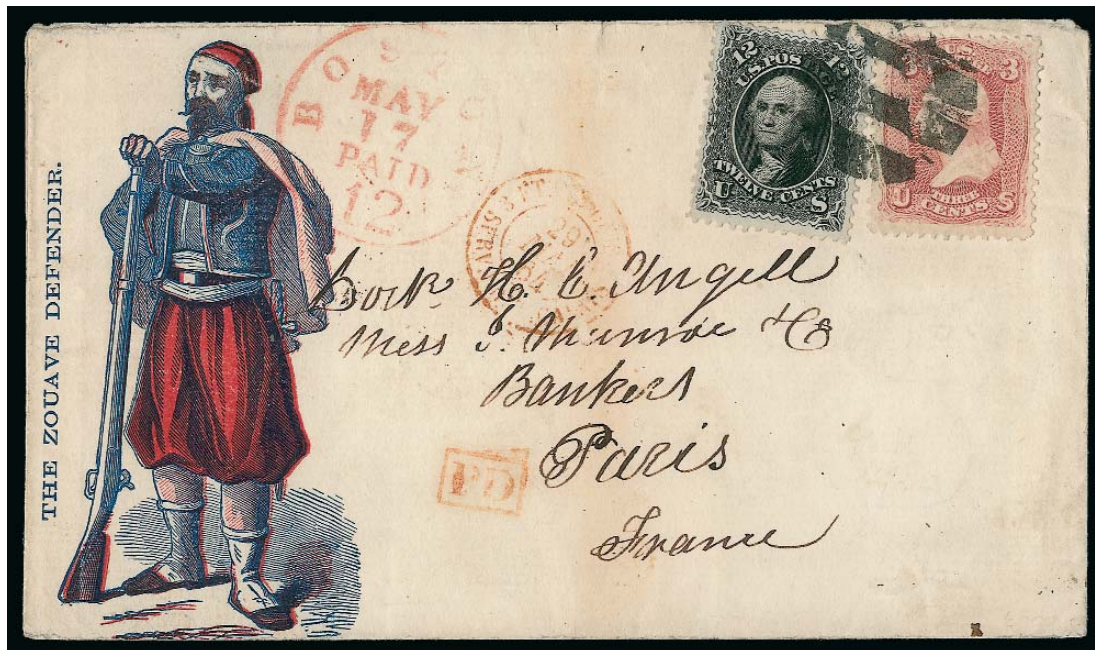 THE ZOUAVE DEFENDER.
BOSTON
MAY
17
PAID
12
12 12
U.S. POSTAGE
TWELVE CENTS
U S
U.S. 3
THREE
CENTS
U S
29
Doct H. C. Angell
Mess J. Munroe & Co
Bankers
Paris
France
PD